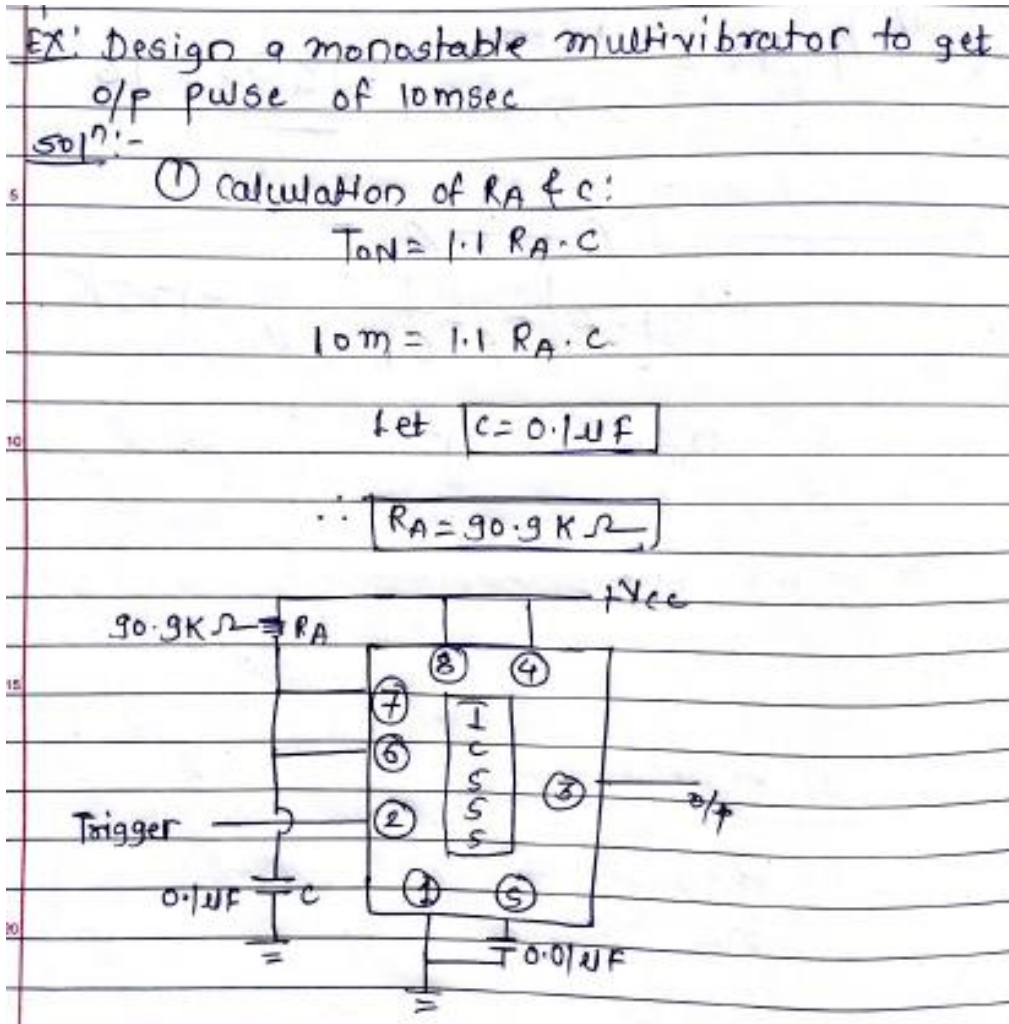 Ex: Design a monostable multivibrator to get
o/p pulse of 10msec
Solⁿ:-
① Calculation of RA & C:
TON = 1.1 RA.C
10m = 1.1 RA.C
Let C = 0.1μF
∴ RA = 90.9KΩ
+Vcc
90.9KΩ RA
⑧ ④
⑦
⑥
I
C
5
5
5
③ o/p
Trigger ②
0.1μF C
① ⑤
0.01μF
5
10
15
20